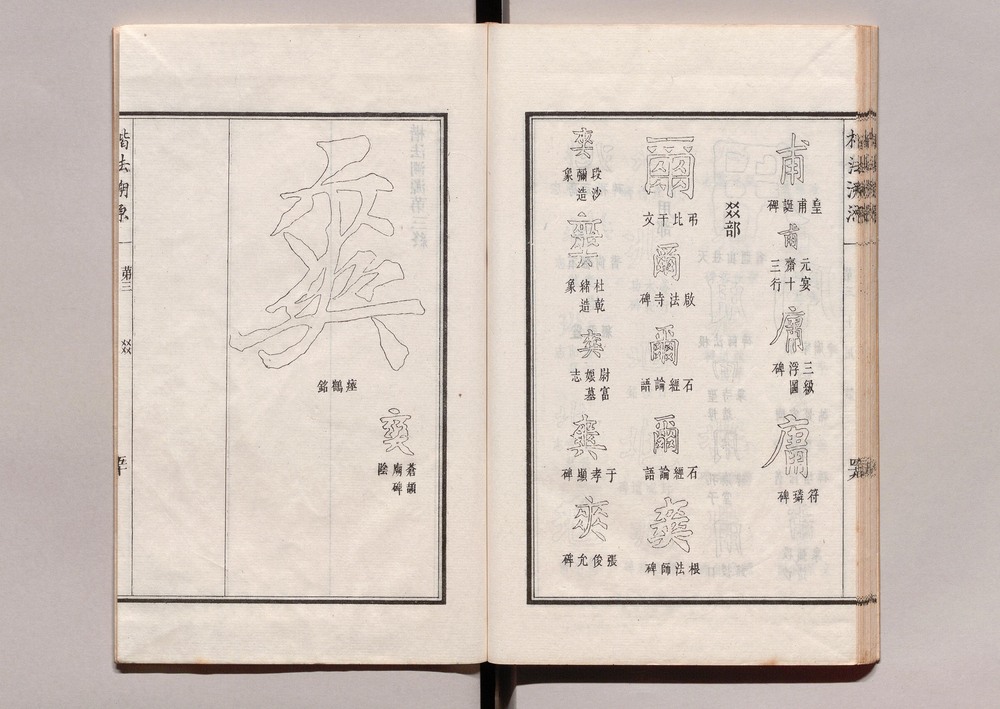 甫
皇甫誕碑
甫
元宴齋十三行
庸
三級浮圖碑
庸
符璘碑
叕部
爾
弔比干文
爾
啟法寺碑
爾
石經論語
爾
石經論語
爽
根法師碑
爽
段沙彌造象
爽
杜乾緒造象
爽
尉富娘墓志
爽
于孝顯碑
爽
張俊允碑
爽
蒼頡廟碑陰
爽
瘞鶴銘
楷法溯源
第三
叕